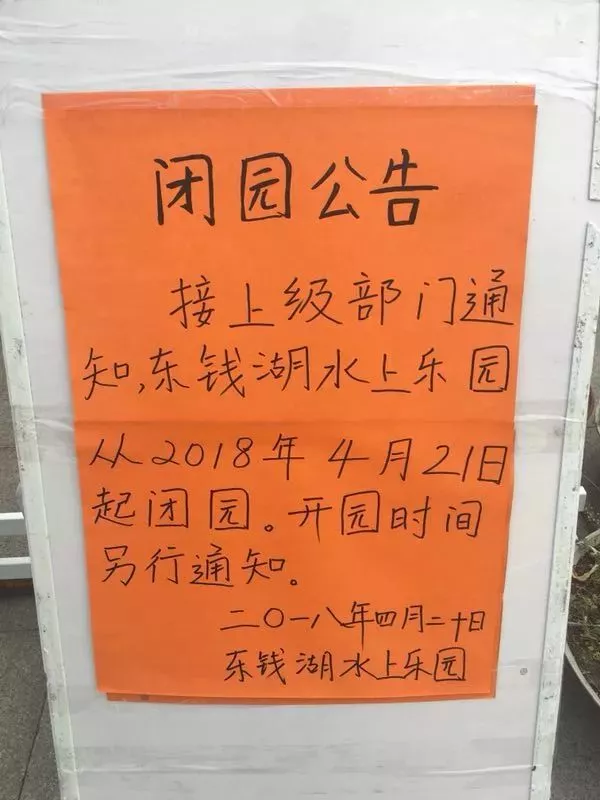 闭园公告
接上级部门通
知,东钱湖水上乐园
从2018年4月21日
起闭园。开园时间
另行通知。
二〇一八年四月二十日
东钱湖水上乐园